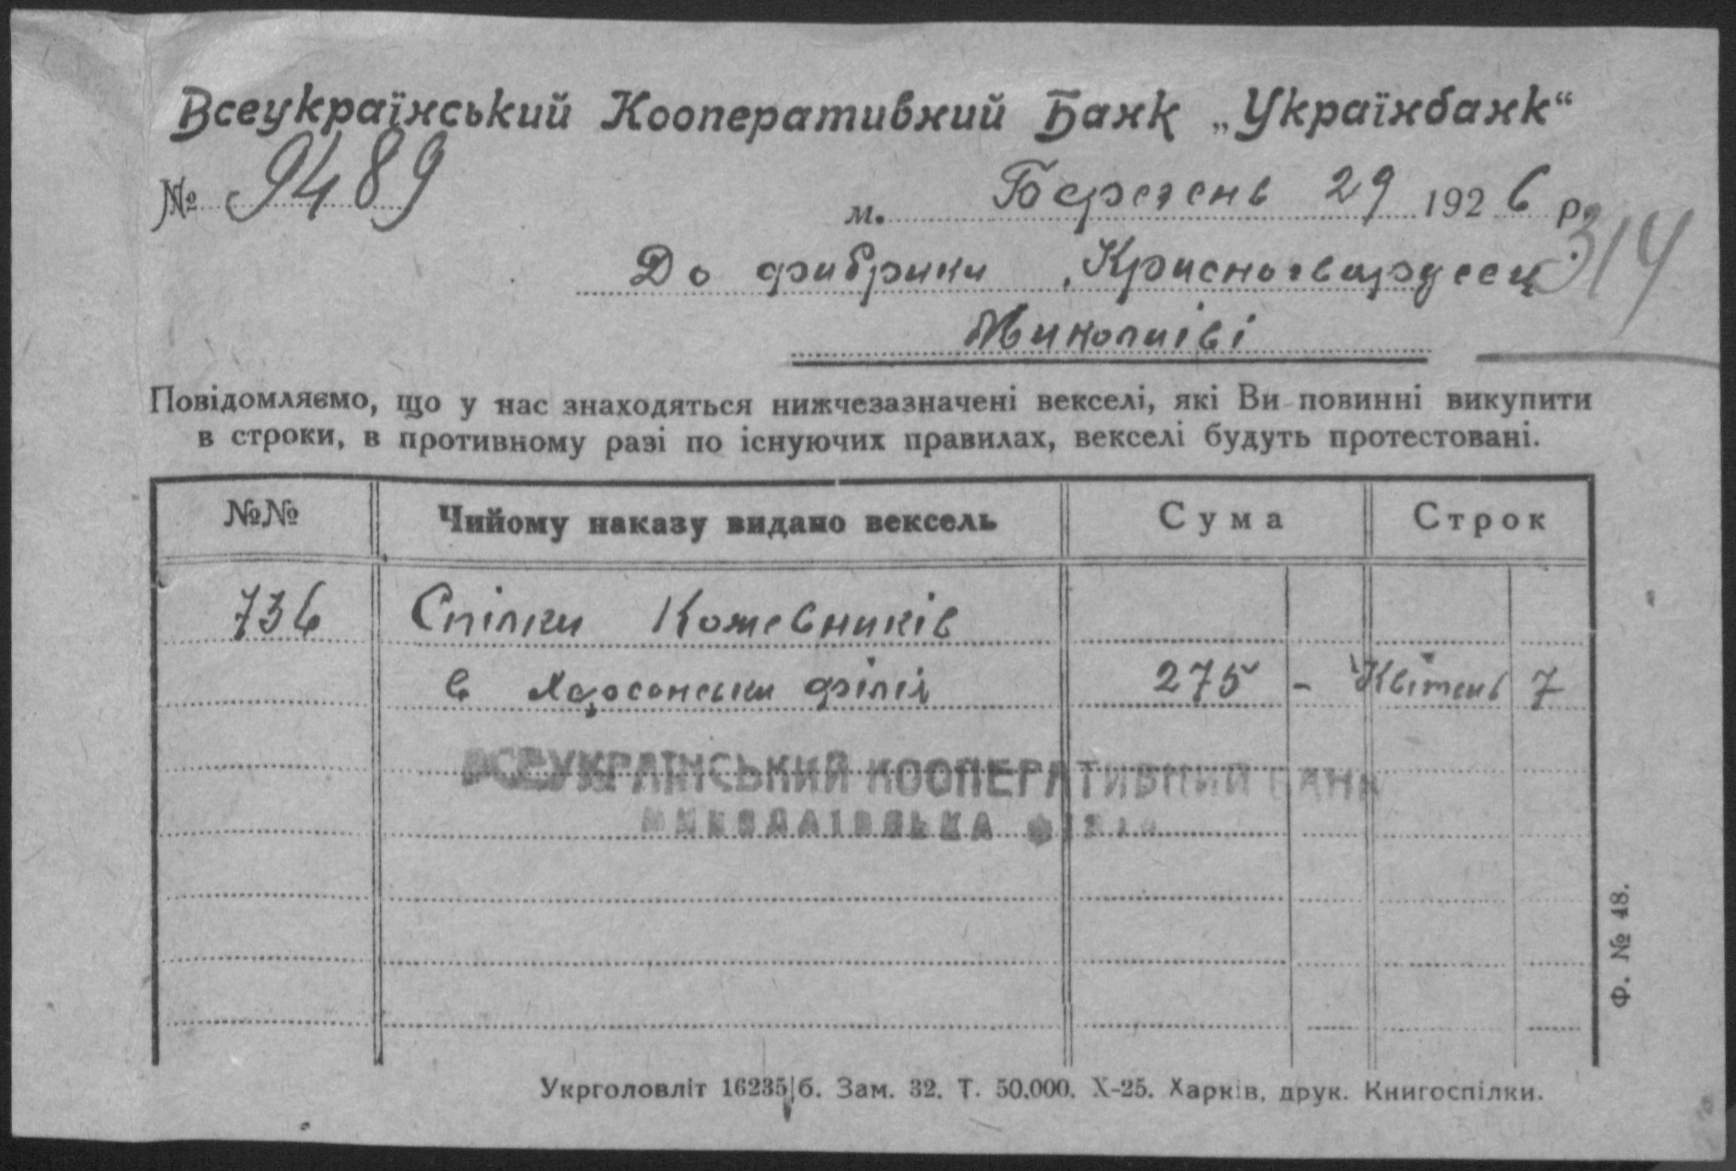 Всеукраїнський Кооперативний Банк „Українбанк“
№ 9489
м. Березень 29 1926 р.
314
До фабрики „Красногвардеец
Миколаіві
Повідомляємо, що у нас знаходяться нижчезазначені векселі, які Ви повинні викупити
в строки, в противному разі по існуючих правилах, векселі будуть протестовані.
№№ Чийому наказу видано вексель Сума Строк
736 Спілки Кожевників
в Херсонськи філіі 275 - Квітень 7
ВСЕУКРАЇНСЬКИЙ КООПЕРАТИВНИЙ БАНК
МИКОЛАІВСЬКА ФІЛІЯ
Ф. № 48.
Укрголовліт 16235/б. Зам. 32. Т. 50.000. X-25. Харків, друк. Книгоспілки.